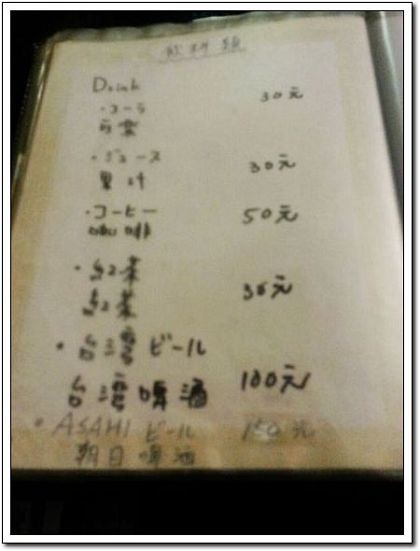 飲料類
Drink
・コーラ 30元
可樂
・ジュース 30元
果汁
・コーヒー 50元
咖啡
・紅茶 30元
紅茶
・台湾ビール
台湾啤酒 100元
・ASAHI ビール 150元
朝日啤酒